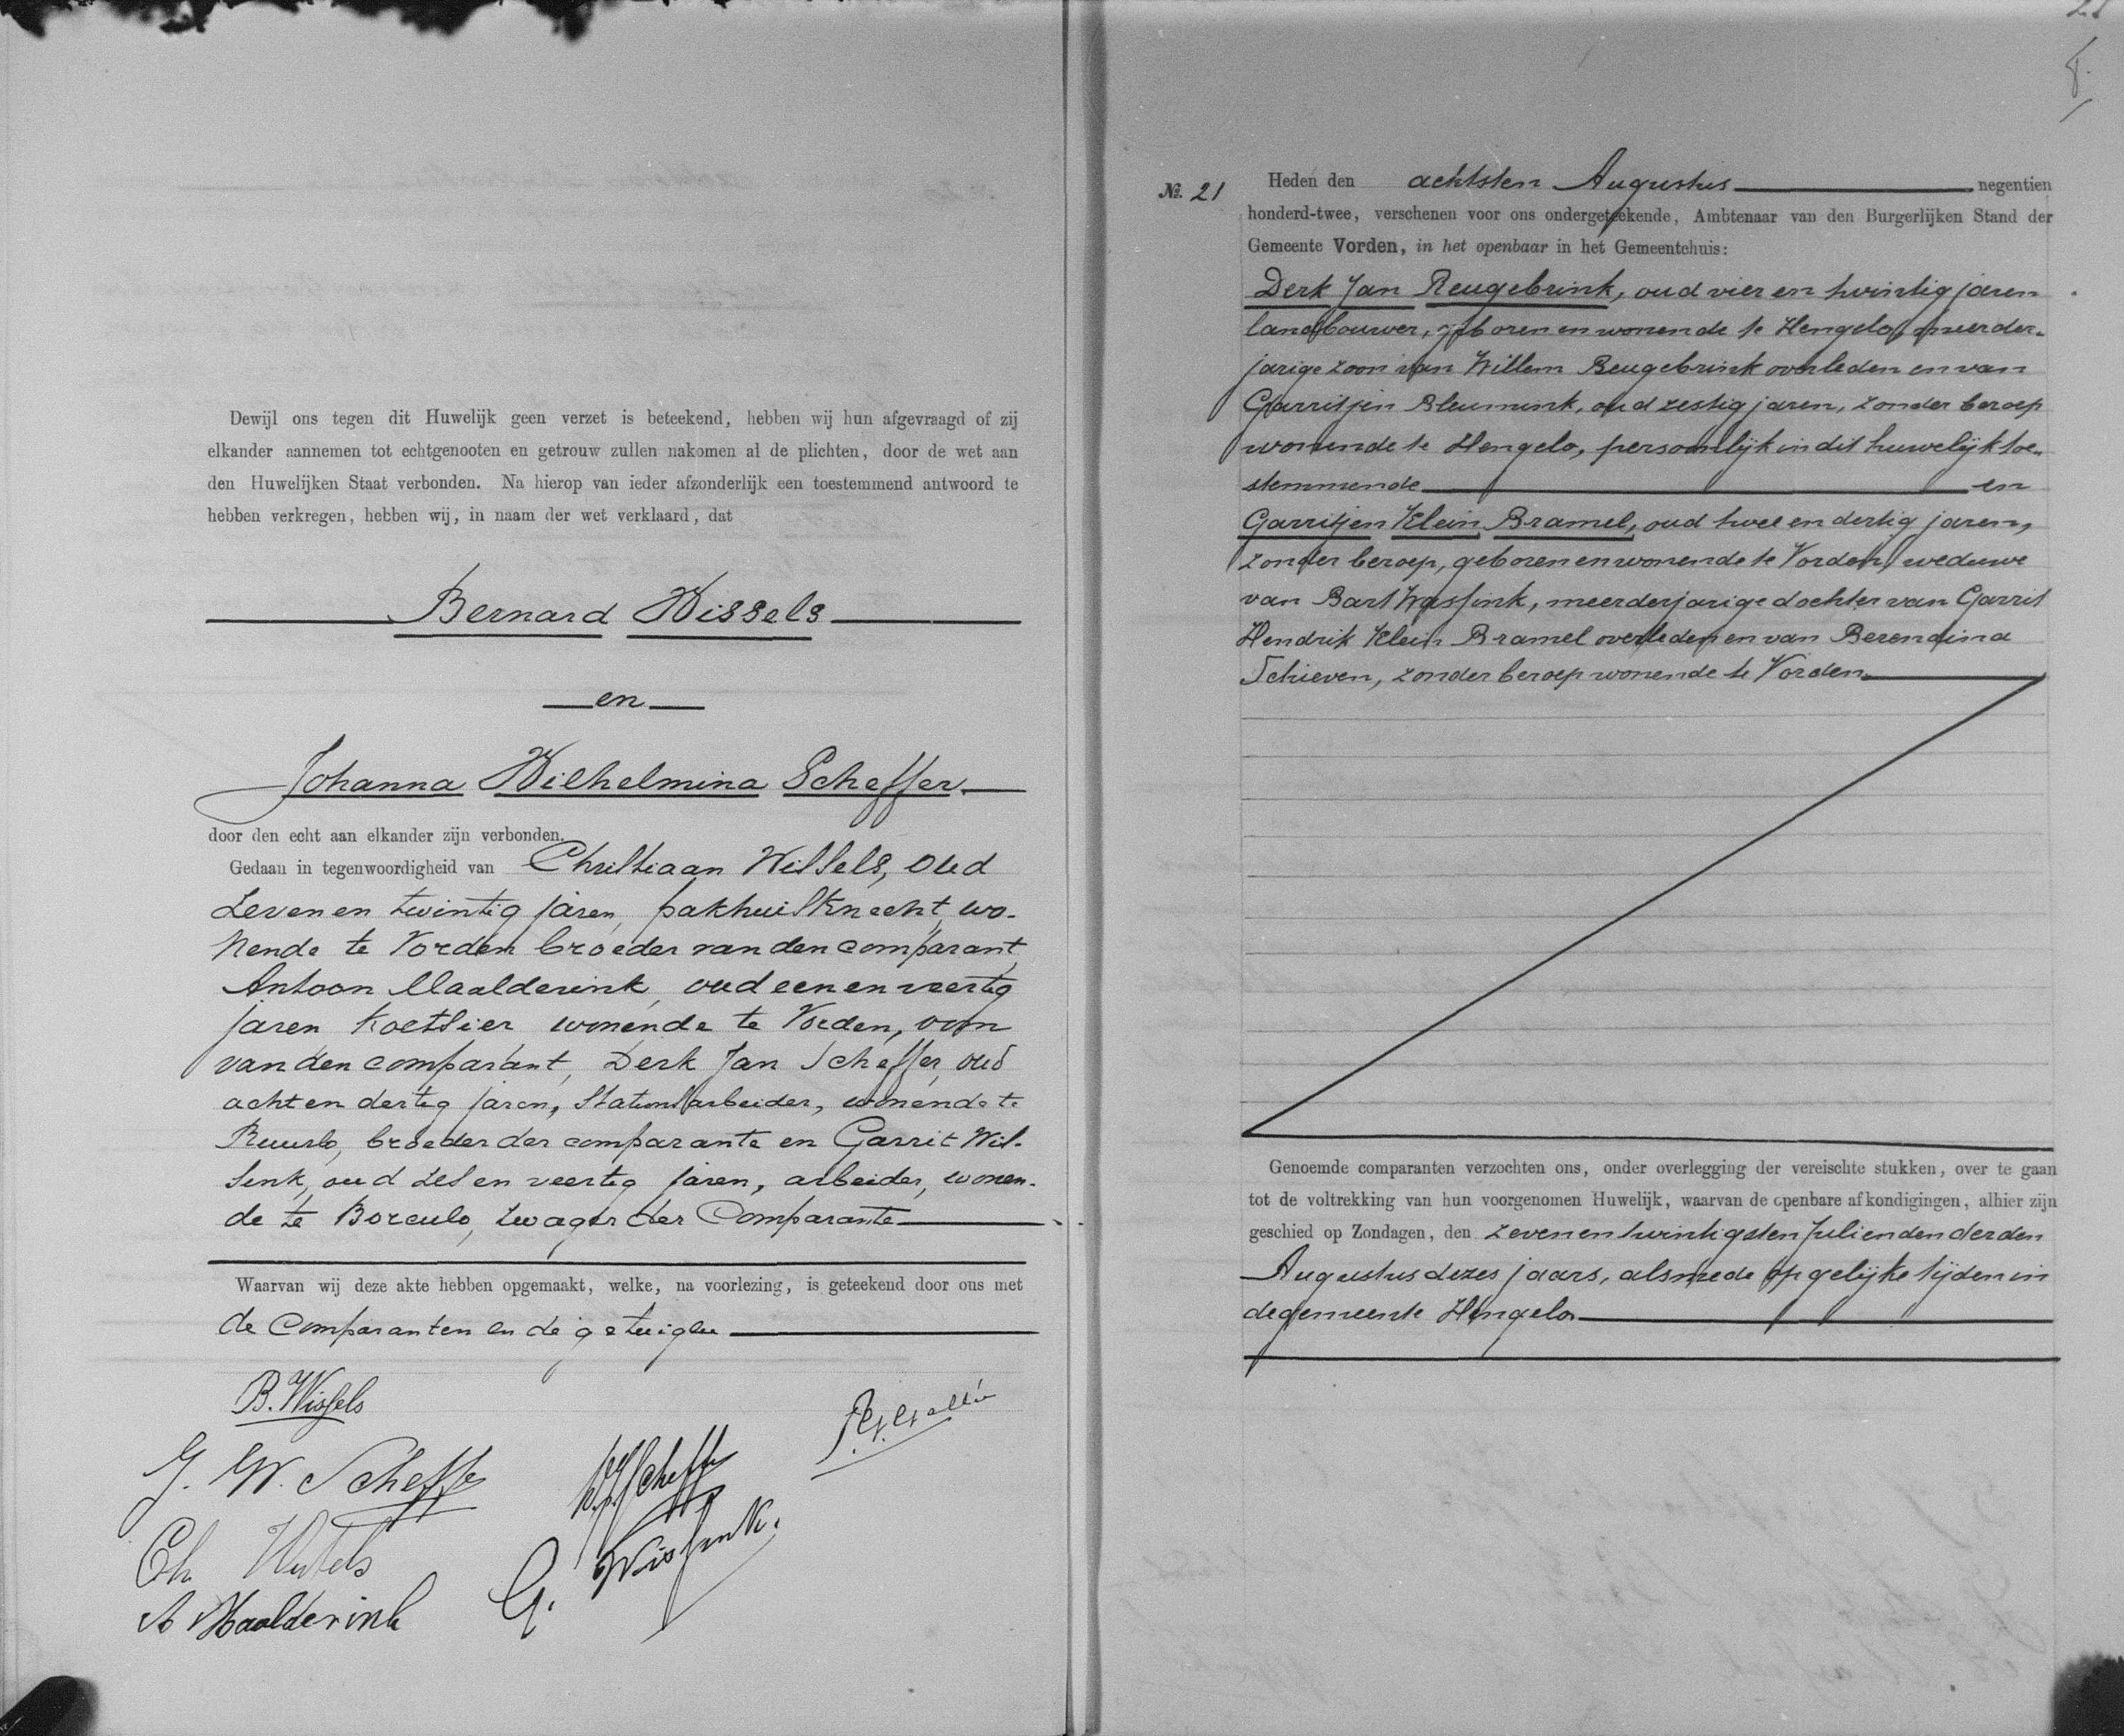 Dewijl ons tegen dit Huwelijk geen verzet is beteekend, hebben wij hun afgevraagd of zij
elkander aannemen tot echtgenooten en getrouw zullen nakomen al de plichten, door de wet aan
den Huwelijken Staat verbonden. Na hierop van ieder afzonderlijk een toestemmend antwoord te
hebben verkregen, hebben wij, in naam der wet verklaard, dat
Bernard Wissels
en
Johanna Wilhelmina Scheffer
door den echt aan elkander zijn verbonden.
Gedaan in tegenwoordigheid van Christiaan Wissels, oud
zeven en twintig jaren, pakhuisknecht, wo-
nende te Vorden broeder van den comparant,
Antoon Maalderink, oud een en veertig
jaren koetsier wonende te Vorden, oom
van den comparant, Derk Jan Scheffer, oud
acht en dertig jaren, stationsarbeider, wonende te
Ruurlo, broeder der comparante en Garrit Wis-
sink, oud zes en veertig jaren, arbeider, wonen-
de te Borculo, zwager der Comparante
Waarvan wij deze akte hebben opgemaakt, welke, na voorlezing, is geteekend door ons met
de Comparanten en de getuigen
B. Wissels
J. W. Scheffer
D J Scheffer
Ch Wissels
G. Wissink.
A Maalderink
21
№. 21 Heden den achtsten Augustus negentien
honderd-twee, verschenen voor ons ondergeteekende, Ambtenaar van den Burgerlijken Stand der
Gemeente Vorden, in het openbaar in het Gemeentehuis:
Derk Jan Reugebrink, oud vier en twintig jaren
landbouwer, geboren en wonende te Hengelo, meerder-
jarige zoon van Willem Reugebrink overleden en van
Garritjen Bleumink, oud zestig jaren, zonder beroep
wonende te Hengelo, persoonlijk in dit huwelijk toe-
stemmende en
Garritjen Klein Bramel, oud twee en dertig jaren,
zonder beroep, geboren en wonende te Vorden, weduwe
van Bart Wassink, meerderjarige dochter van Garrit
Hendrik Klein Bramel overleden en van Berendina
Schieven, zonder beroep wonende te Vorden
Genoemde comparanten verzochten ons, onder overlegging der vereischte stukken, over te gaan
tot de voltrekking van hun voorgenomen Huwelijk, waarvan de openbare afkondigingen, alhier zijn
geschied op Zondagen, den zeven en twintigsten Juli en den derden
Augustus dezes jaars, alsmede op gelijke tijden in
de gemeente Hengelo